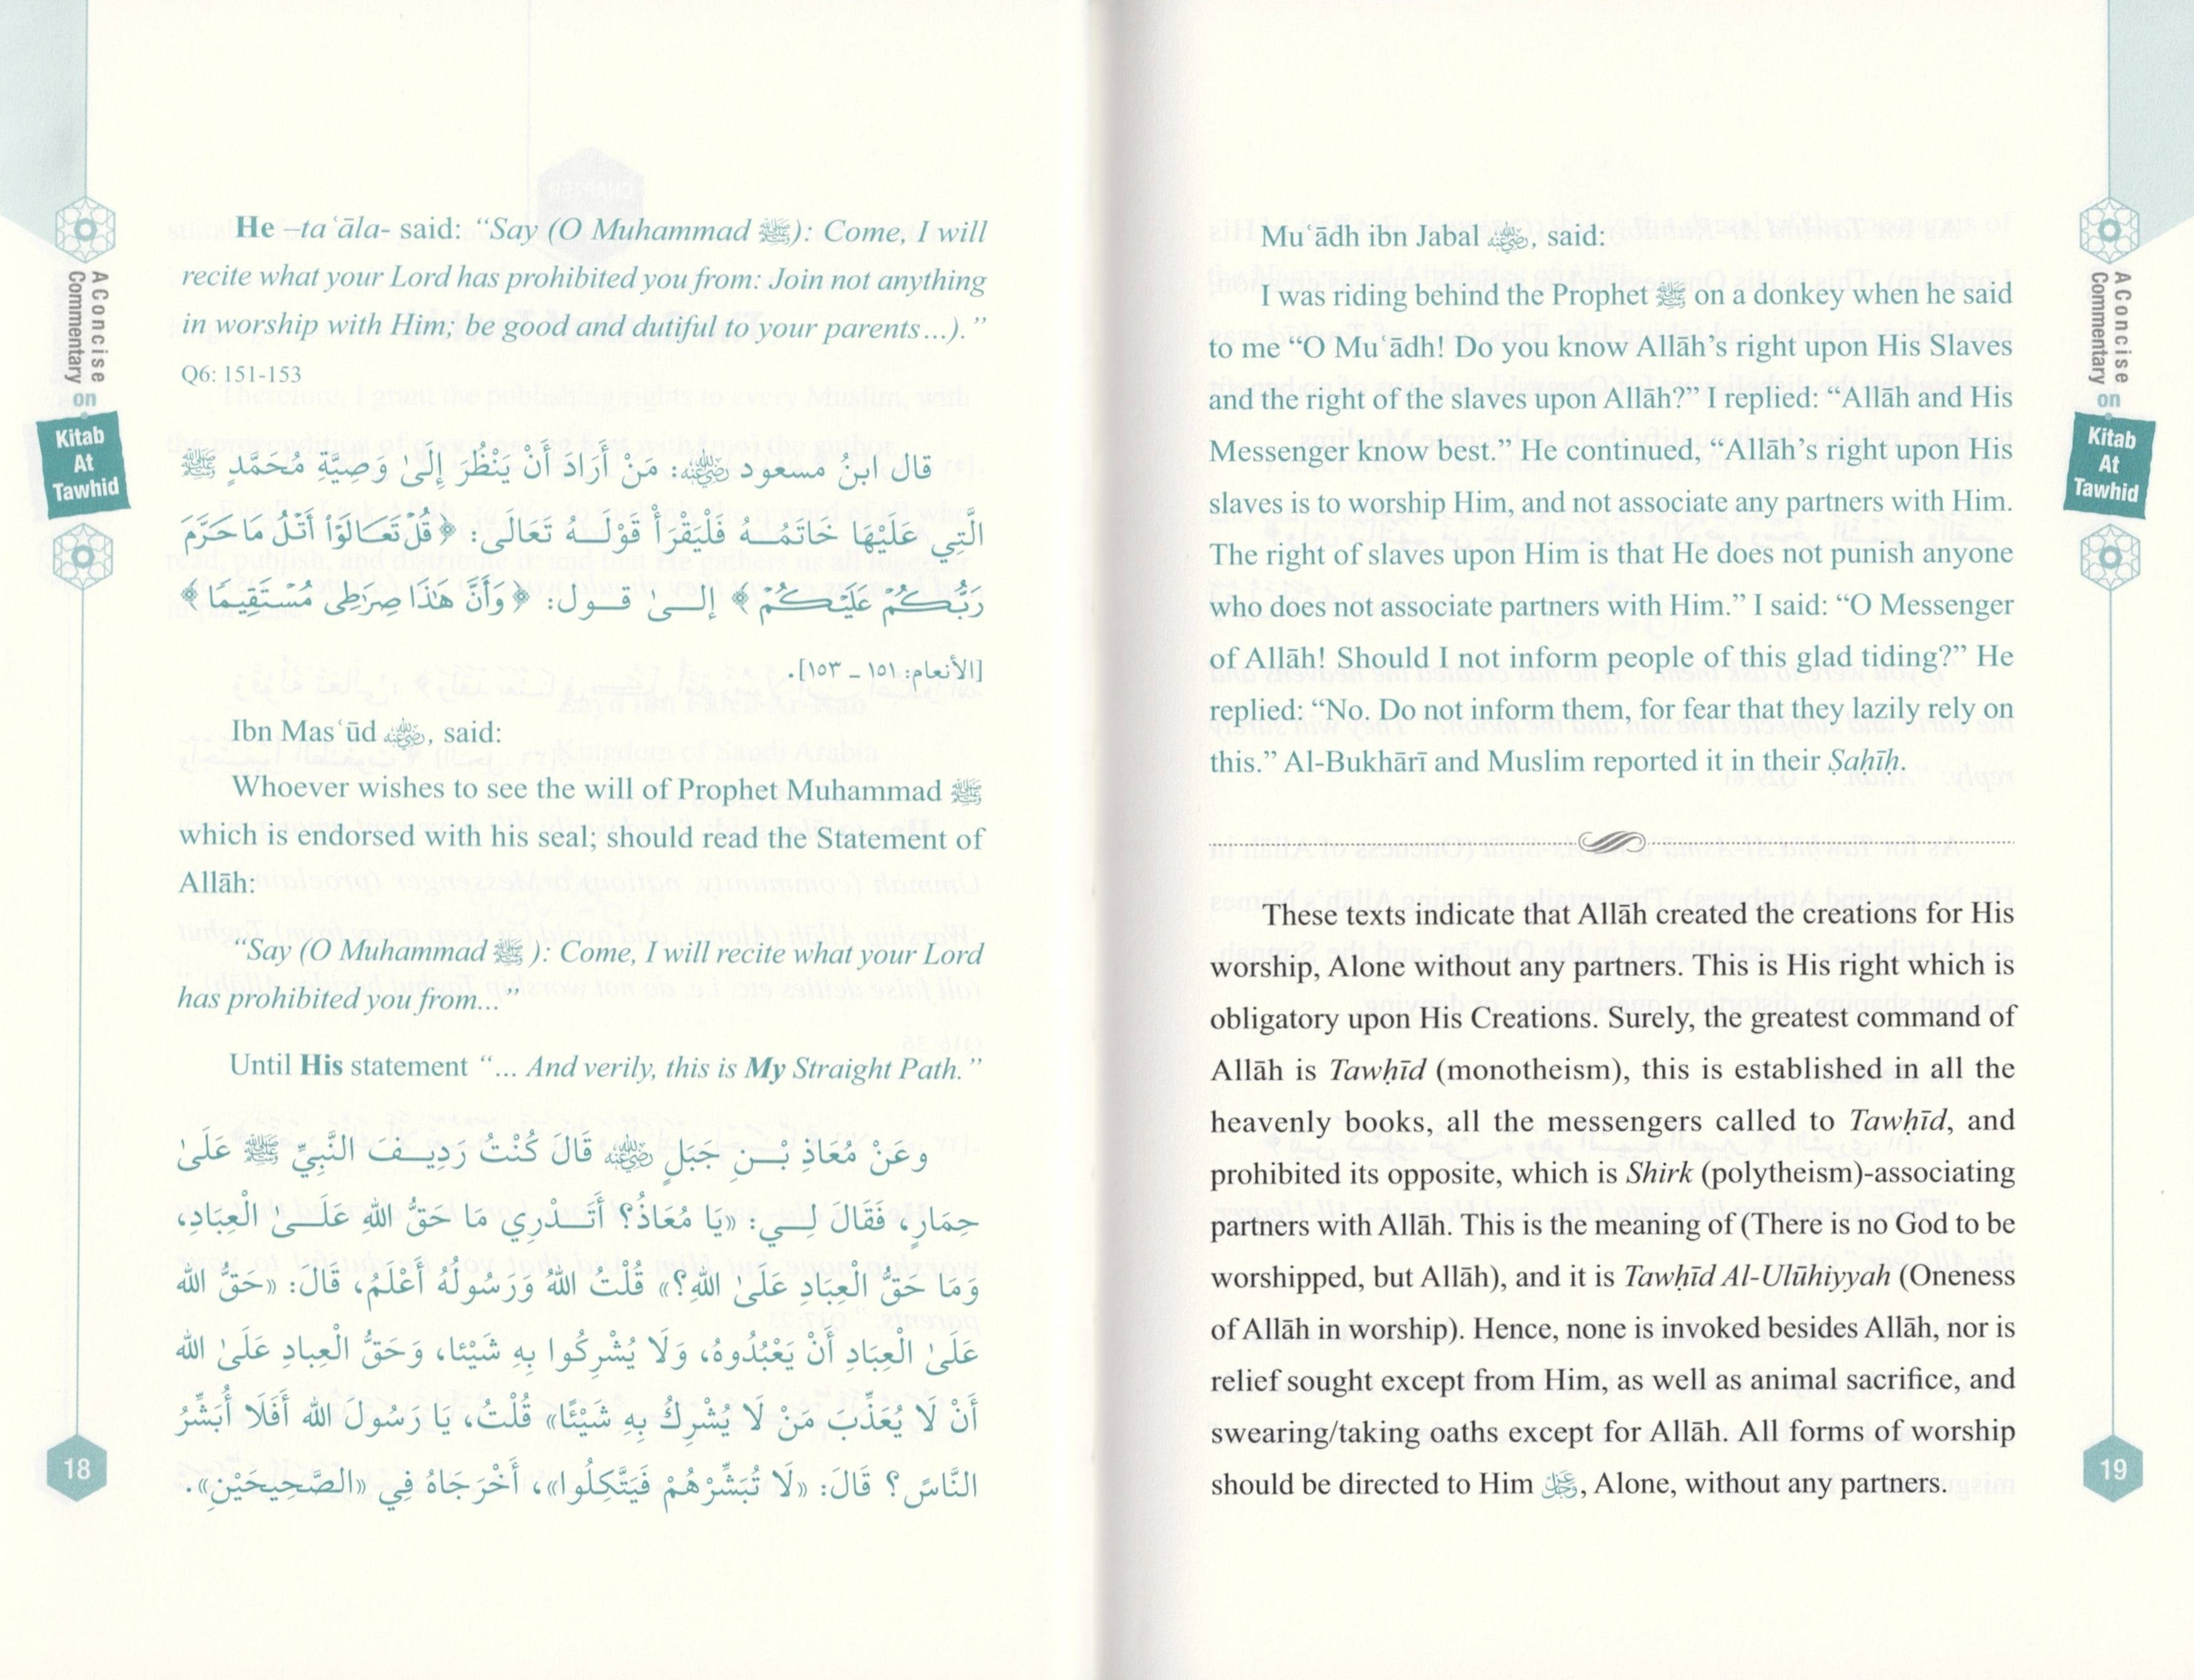 He –taʿāla- said: “Say (O Muhammad ﷺ): Come, I will
recite what your Lord has prohibited you from: Join not anything
in worship with Him; be good and dutiful to your parents…).”
Q6: 151-153
قال ابنُ مسعود رضي الله عنه: مَنْ أَرَادَ أَنْ يَنْظُرَ إِلَىٰ وَصِيَّةِ مُحَمَّدٍ ﷺ
الَّتِي عَلَيْهَا خَاتَمُـــهُ فَلْيَقْرَأْ قَوْلَـــهُ تَعَالَى: ﴿قُلْ تَعَالَوْا۟ أَتْلُ مَا حَرَّمَ
رَبُّكُمْ عَلَيْكُمْ﴾ إلـــىٰ قـــول: ﴿وَأَنَّ هَٰذَا صِرَٰطِى مُسْتَقِيمًا﴾
[الأنعام: ١٥١ ـ ١٥٣].
Ibn Masʿūd رضي الله عنه, said:
Whoever wishes to see the will of Prophet Muhammad ﷺ
which is endorsed with his seal; should read the Statement of
Allāh:
“Say (O Muhammad ﷺ ): Come, I will recite what your Lord
has prohibited you from...”
Until His statement “... And verily, this is My Straight Path.”
وعَنْ مُعَاذِ بْـــنِ جَبَلٍ رضي الله عنه قَالَ كُنْتُ رَدِيـــفَ النَّبِيِّ ﷺ عَلَىٰ
حِمَارٍ، فَقَالَ لِـــي: «يَا مُعَاذُ؟ أَتَـــدْرِي مَا حَقُّ اللهِ عَلَـــىٰ الْعِبَادِ،
وَمَا حَقُّ الْعِبَادِ عَلَىٰ اللهِ؟» قُلْتُ اللهُ وَرَسُولُهُ أَعْلَمُ، قَالَ: «حَقُّ الله
عَلَىٰ الْعِبَادِ أَنْ يَعْبُدُوهُ، وَلَا يُشْرِكُوا بِهِ شَيْئا، وَحَقُّ الْعِبادِ عَلَىٰ الله
أَنْ لَا يُعَذِّبَ مَنْ لَا يُشْرِكُ بِهِ شَيْئًا» قُلْتُ، يَا رَسُولَ الله أَفَلَا أُبَشِّرُ
النَّاسَ؟ قَالَ: «لَا تُبَشِّرْهُمْ فَيَتَّكِلُوا»، أَخْرَجَاهُ فِي «الصَّحِيحَيْنِ».
A Concise
Commentary on
Kitab
At
Tawhid
18
Muʿādh ibn Jabal رضي الله عنه, said:
I was riding behind the Prophet ﷺ on a donkey when he said
to me “O Muʿādh! Do you know Allāh’s right upon His Slaves
and the right of the slaves upon Allāh?” I replied: “Allāh and His
Messenger know best.” He continued, “Allāh’s right upon His
slaves is to worship Him, and not associate any partners with Him.
The right of slaves upon Him is that He does not punish anyone
who does not associate partners with Him.” I said: “O Messenger
of Allāh! Should I not inform people of this glad tiding?” He
replied: “No. Do not inform them, for fear that they lazily rely on
this.” Al-Bukhārī and Muslim reported it in their Ṣaḥīḥ.
These texts indicate that Allāh created the creations for His
worship, Alone without any partners. This is His right which is
obligatory upon His Creations. Surely, the greatest command of
Allāh is Tawḥīd (monotheism), this is established in all the
heavenly books, all the messengers called to Tawḥīd, and
prohibited its opposite, which is Shirk (polytheism)-associating
partners with Allāh. This is the meaning of (There is no God to be
worshipped, but Allāh), and it is Tawḥīd Al-Ulūhiyyah (Oneness
of Allāh in worship). Hence, none is invoked besides Allāh, nor is
relief sought except from Him, as well as animal sacrifice, and
swearing/taking oaths except for Allāh. All forms of worship
should be directed to Him عز وجل, Alone, without any partners.
A Concise
Commentary on
Kitab
At
Tawhid
19